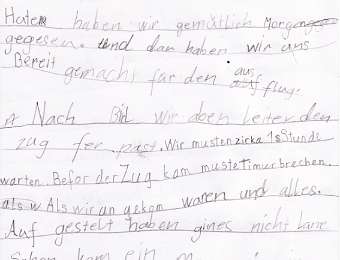 Haten haben wir gemütlich Morgen
gegesen. und dan haben wir uns
Bereit gemacht für den aus
flug.
Nach wir doen leiter den
zug fer past. Wir musten zirka 1s Stunde
warten. Befor der Zug kam muste timur brechen.
als w Als wir an gekom waren und alles.
Auf gestelt haben gines nicht lane
Schon kam ein